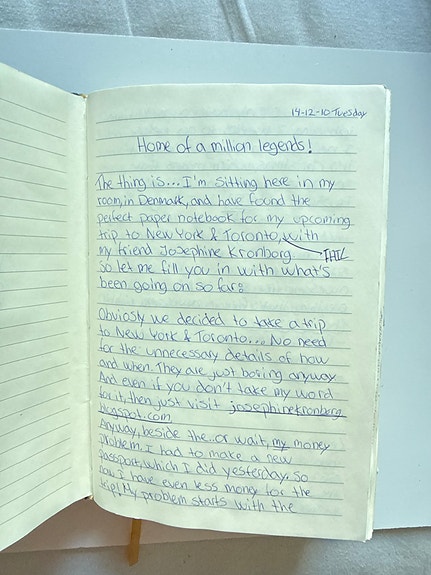 14-12-10 Tuesday
Home of a million legends!
The thing is... I'm sitting here in my
room, in Denmark, and have found the
perfect paper notebook for my upcoming
trip to New York & Toronto, with
my friend Josephine Kronborg.
So let me fill you in with what's
been going on so far:
Obviosly we decided to take a trip
to New York & Toronto... No need
for the unnecessary details of how
and when. They are just boring anyway
And even if you don't take my word
for it, then just visit josephinekronberg.
blogspot.com
Anyway, beside the.. or wait, my money
problem. I had to make a new
passport, which I did yesterday. So
now I have even less money for the
trip! My problem starts with the